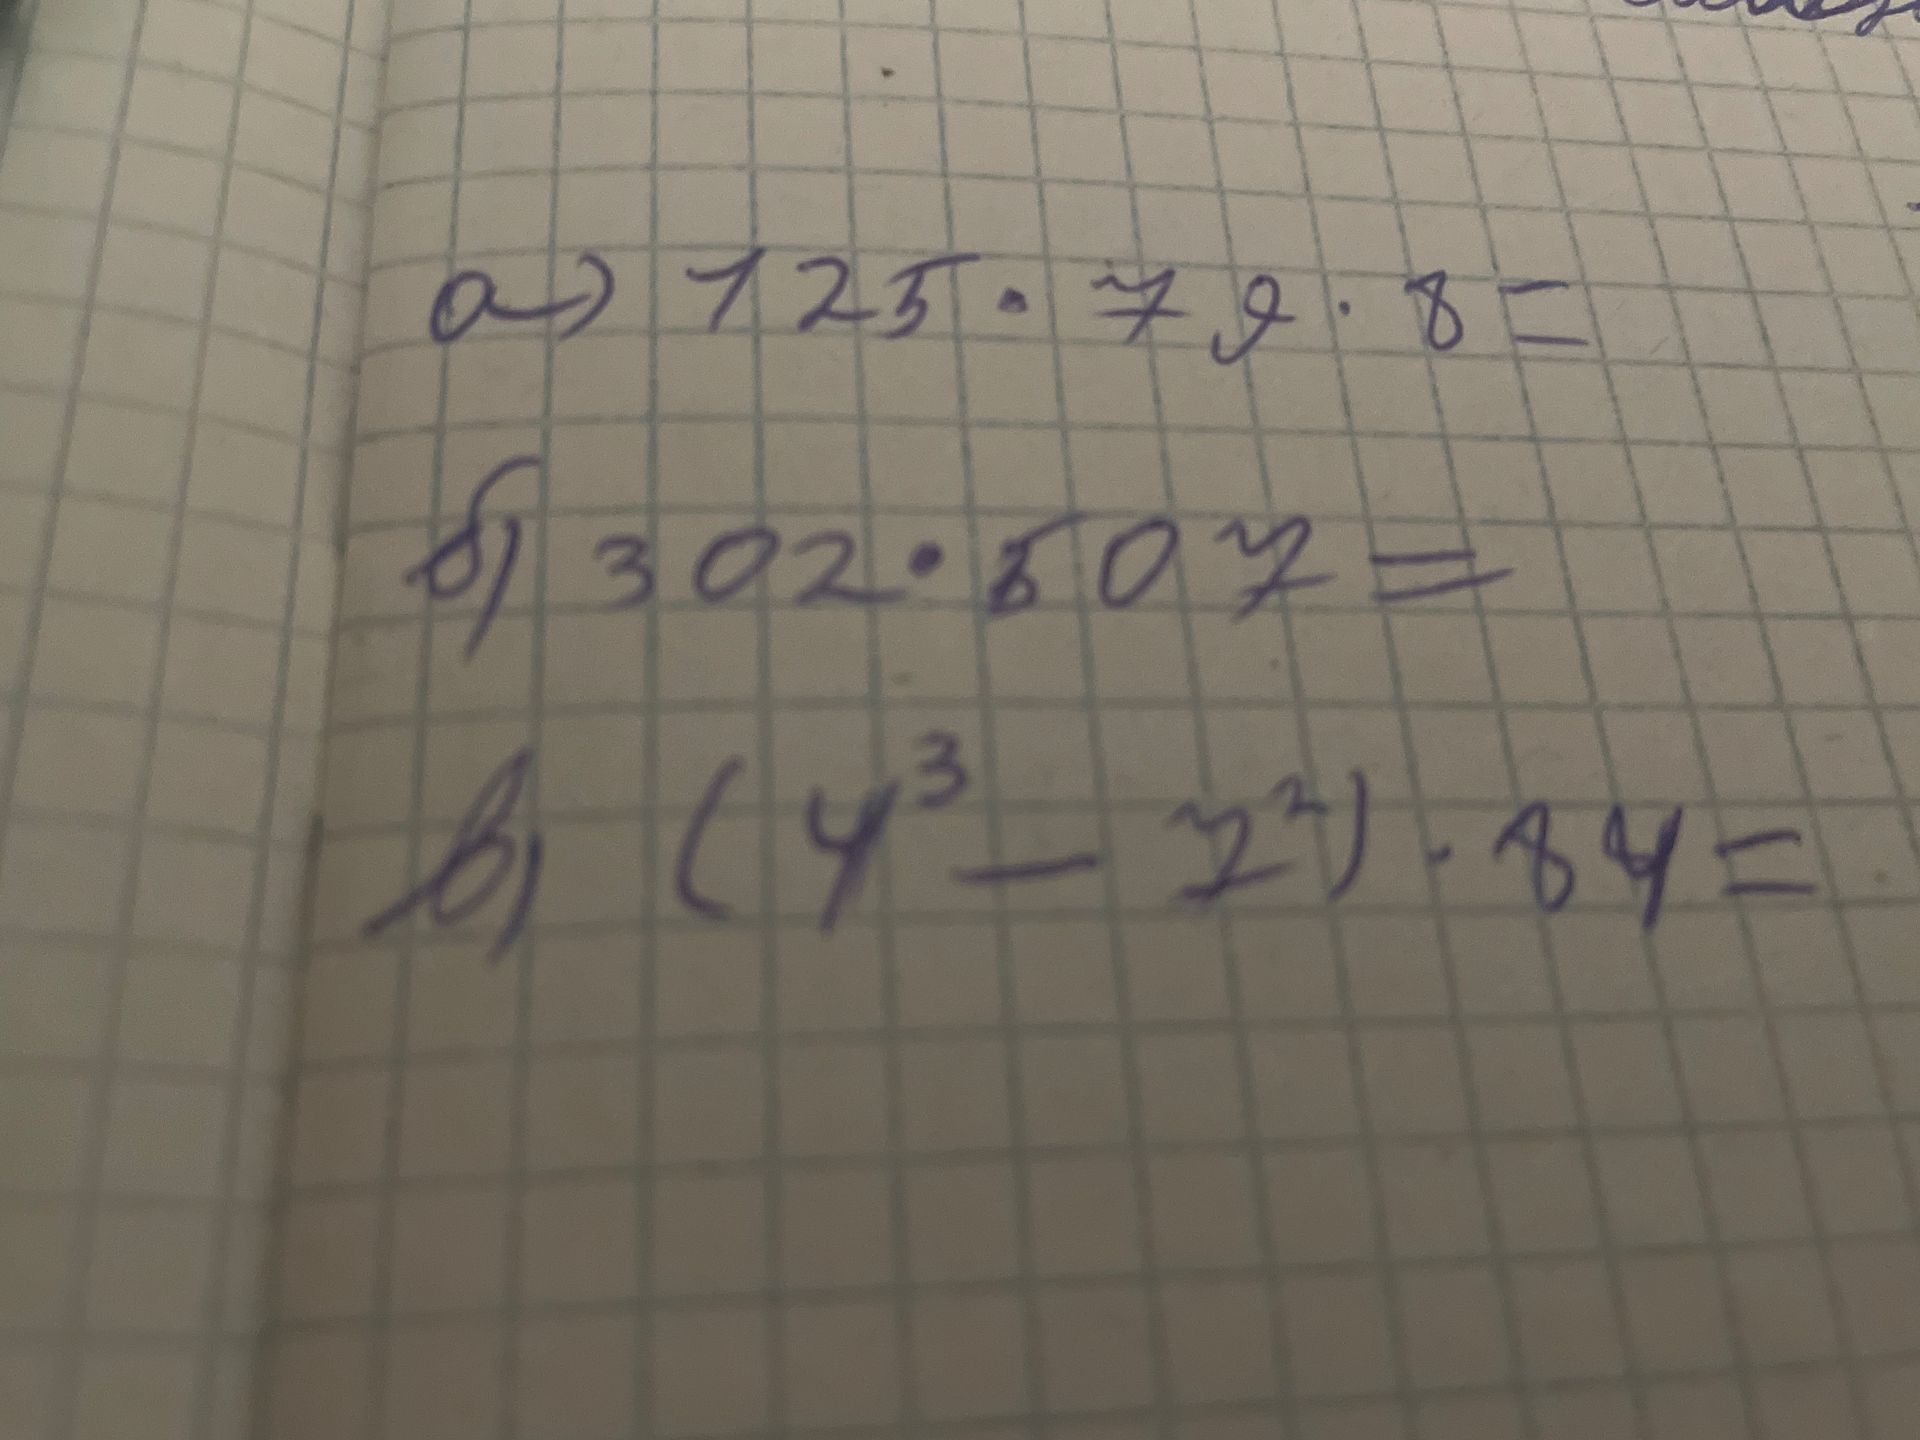 а) 125 · 79 · 8 =
б) 302 · 507 =
в) (4³ - 7²) · 84 =